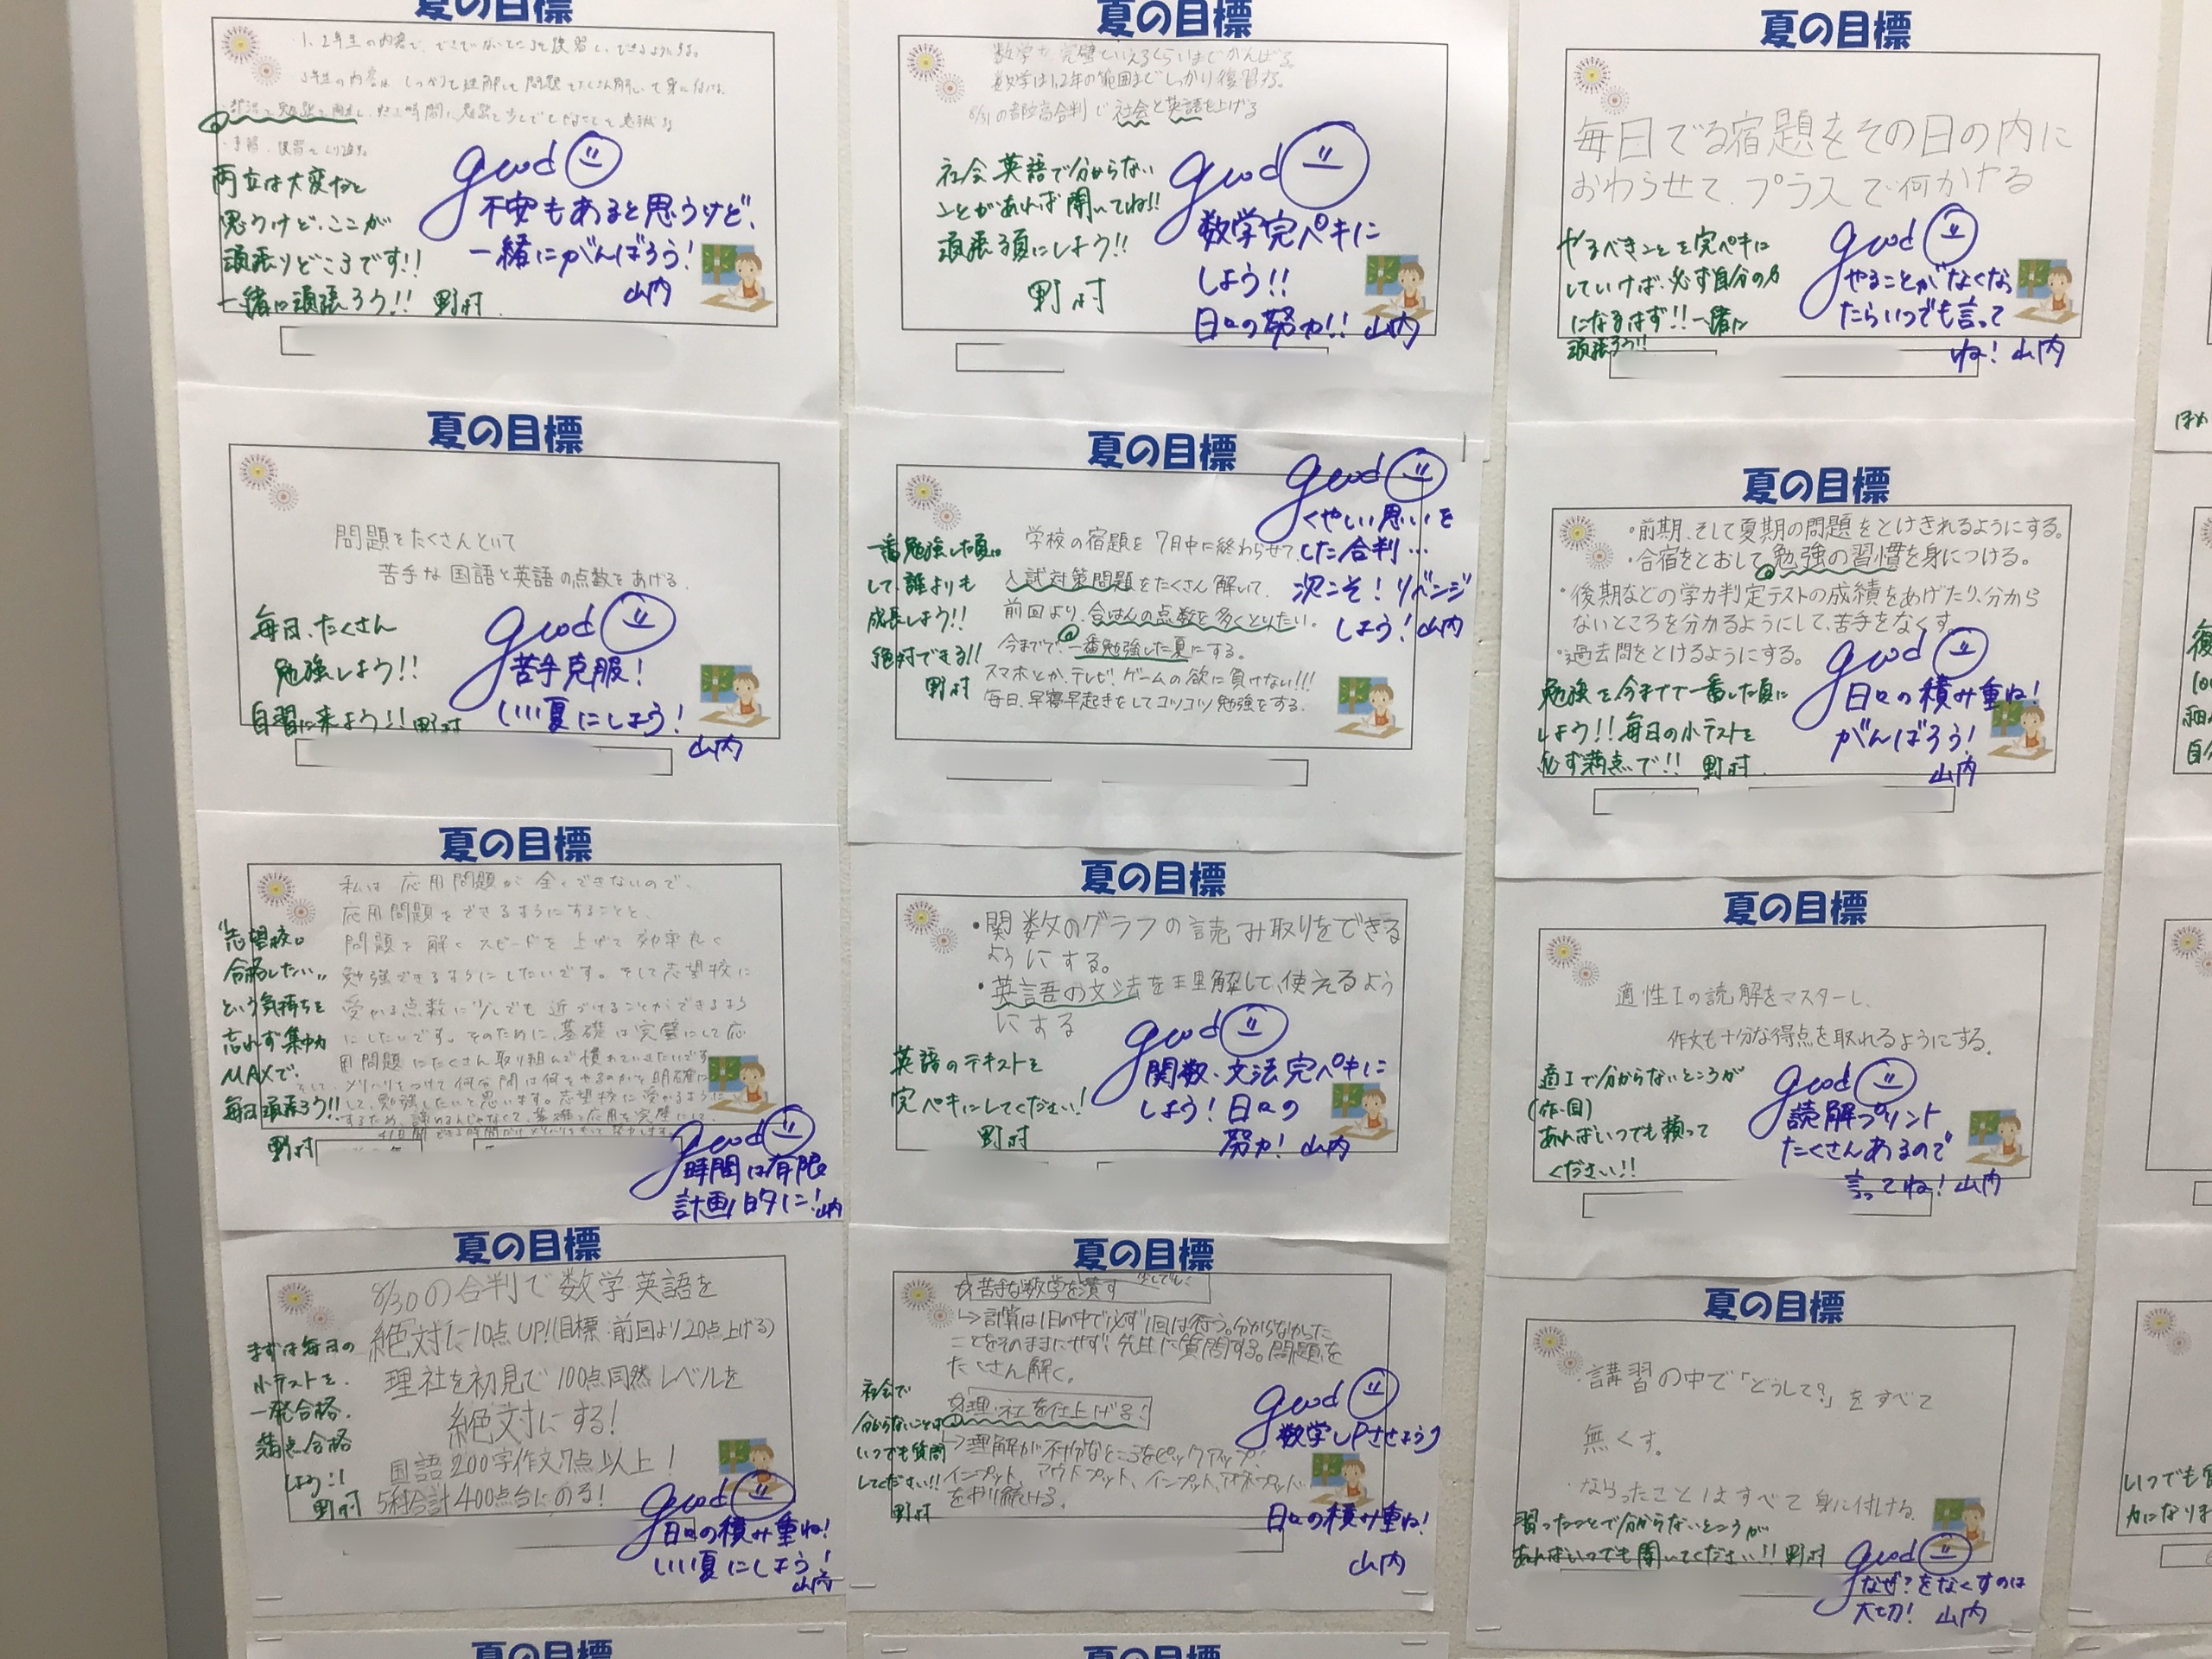 夏の目標
1、2年生の内容で、できていないところを復習し、できるようにする。
3年生の内容はしっかりと理解して問題をたくさん解いて身に付ける。
予習、復習をくり返す。
両立は大変だと
思うけど、ここが
頑張りどころです!!
一緒に頑張ろう!! 野村
good
不安もあると思うけど、
一緒にがんばろう!
山内
夏の目標
数学を完璧といえるくらいまでがんばる。
数学は1,2年の範囲までしっかり復習する。
8/31の都立高合判で社会と英語を上げる
社会 英語で分からない
ことがあれば聞いてね!!
頑張る夏にしよう!!
野村
good
数学完ペキに
しよう!!
日々の努力!! 山内
夏の目標
毎日でる宿題をその日の内に
おわらせて、プラスで何かする
やるべきことを完ペキに
していけば、必ず自分の力
になるはず!!一緒に
頑張ろう!!
good
やることがなくなっ
たらいつでも言って
ね! 山内
夏の目標
問題をたくさんといて
苦手な国語と英語の点数をあげる。
毎日、たくさん
勉強しよう!!
自習に来よう!! 野村
good
苦手克服!
いい夏にしよう!
山内
夏の目標
学校の宿題を7月中に終わらせて、
入試対策問題をたくさん解いて、
前回より、合はんの点数を多くとりたい。
今までで、一番勉強した夏にする。
スマホとか、テレビ、ゲームの欲に負けない!!!
毎日、早寝早起きをしてコツコツ勉強をする。
一番勉強した夏に
して、誰よりも
成長しよう!!
絶対できる!!
野村
good
くやしい思いを
した合判…
次こそ!リベンジ
しよう!山内
夏の目標
・前期、そして夏期の問題をときれるようにする。
・合宿をとおして勉強の習慣を身につける。
・後期などの学力判定テストの成績をあげたり、分から
ないところを分かるようにして、苦手をなくす。
・過去問をとけるようにする。
勉強を今までで一番した夏に
しよう!!毎日の小テストを
必ず満点で!! 野村
good
日々の積み重ね!
がんばろう!
山内
夏の目標
私は応用問題が全くできないので、
応用問題をできるようにすることと、
問題を解くスピードを上げて効率良く
勉強できるようにしたいです。そして志望校に
受かる点数に少しでも近づけることができるよう
にしたいです。そのために、基礎は完璧にして応
用問題にたくさん取り組んで慣れていきたいです。
して、勉強したいと思います。志望校に受かるように
するため、諦めるんじゃなくて、基礎と応用を完璧にして、
"志望校に
合格したい"
という気持ちを
忘れず集中力
MAXで、
毎日頑張ろう!!
野村
good
時間は有限
計画的に!山内
夏の目標
・関数のグラフの読み取りをできる
ようにする。
・英語の文法を理解して、使えるよう
にする
英語のテキストを
完ペキにしてください!
野村
good
関数・文法完ペキに
しよう!日々の
努力! 山内
夏の目標
適性Iの読解をマスターし、
作文も十分な得点を取れるようにする。
適Iで分からないところが
(作・国)
あればいつでも頼って
ください!!
good
読解プリント
たくさんあるので
言ってね! 山内
夏の目標
8/30の合判で数学・英語を
絶対に10点UP!(目標・前回より20点上げる)
理社を初見で100点同然レベルを
絶対にする!
国語200字作文7点以上!
5科合計400点台にのる!
まずは毎日の
小テストを、
一発合格、
満点合格
しよう!!
野村
good
日々の積み重ね!
いい夏にしよう!
山内
夏の目標
☆苦手な数学を潰す
↳計算は1日の中で必ず1回は行う。分からなかった
ことをそのままにせず、先生に質問する。問題を
たくさん解く。
☆理・社を仕上げる!
↳理解が不十分なところをピックアップ!
インプット、アウトプット、インプット、アウトプット
をやり続ける。
社会で
分からないことは
いつでも質問
してください!!
野村
good
数学UPさせよう
日々の積み重ね!
山内
夏の目標
・講習の中で「どうして?」をすべて
無くす。
・ならったことはすべて身に付ける。
習ったことで分からないところが
あればいつでも聞いてください!! 野村
good
なぜ?をなくすのは
大切! 山内
いつでも
力になりま
夏の目標
夏の目標